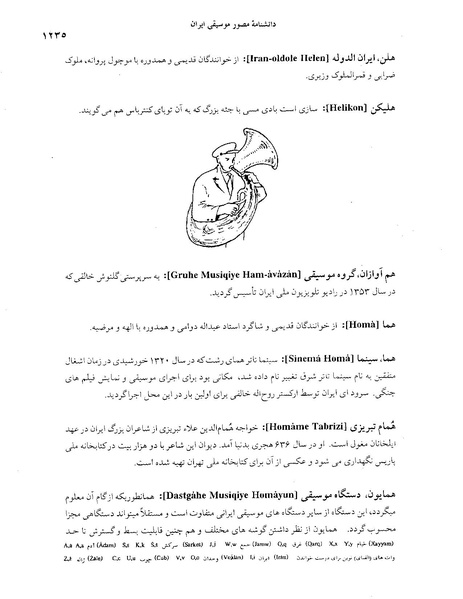 دانشنامهٔ مصور موسیقی ایران
۱۲۳۵
هلن، ایران الدوله [Iran-oldole Helen]: از خوانندگان قدیمی و همدوره با موچول پروانه، ملوک
ضرابی و قمرالملوک وزیری.
هلیکن [Helikon]: سازی است بادی مسی با جثه بزرگ که به آن توبای کنترباس هم می‌گویند.
هم آوازان، گروه موسیقی [Gruhe Musiqiye Ham-âvâzân]: به سرپرستی گلنوش خالقی که
در سال ۱۳۵۳ در رادیو تلویزیون ملی ایران تأسیس گردید.
هما [Homâ]: از خوانندگان قدیمی و شاگرد استاد عبداله دوامی و همدوره با الهه و مرضیه.
هما، سینما [Sinemâ Homâ]: سینما تاتر همای رشت که در سال ۱۳۲۰ خورشیدی در زمان اشغال
متفقین به نام سینما تاتر شوق تغییر نام داده شد، مکانی بود برای اجرای موسیقی و نمایش فیلم های
جنگی. سرود ای ایران توسط ارکستر روح‌اله خالقی برای اولین بار در این محل اجرا گردید.
هُمام تبریزی [Homâme Tabrizi]: خواجه هُمام‌الدین علاء تبریزی از شاعران بزرگ ایران در عهد
ایلخانان مغول است. او در سال ۶۳۶ هجری بدنیا آمد. دیوان این شاعر با دو هزار بیت در کتابخانه ملی
پاریس نگهداری می شود و عکسی از آن برای کتابخانه ملی تهران تهیه شده است.
همایون، دستگاه موسیقی [Dastgâhe Musiqiye Homâyun]: همانطوریکه از گام آن معلوم
میگردد، این دستگاه از سایر دستگاه های موسیقی ایرانی متفاوت است و مستقلاً میتواند دستگاهی مجزا
محسوب گردد. همایون از نظر داشتن گوشه های مختلف و هم چنین قابلیت بسط و گسترش تا حد